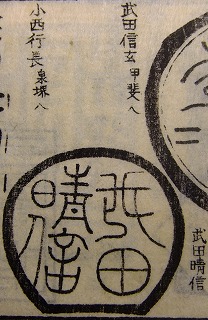 武田信玄 甲斐人
小西行長 泉堺人
武田晴信
武田
晴信